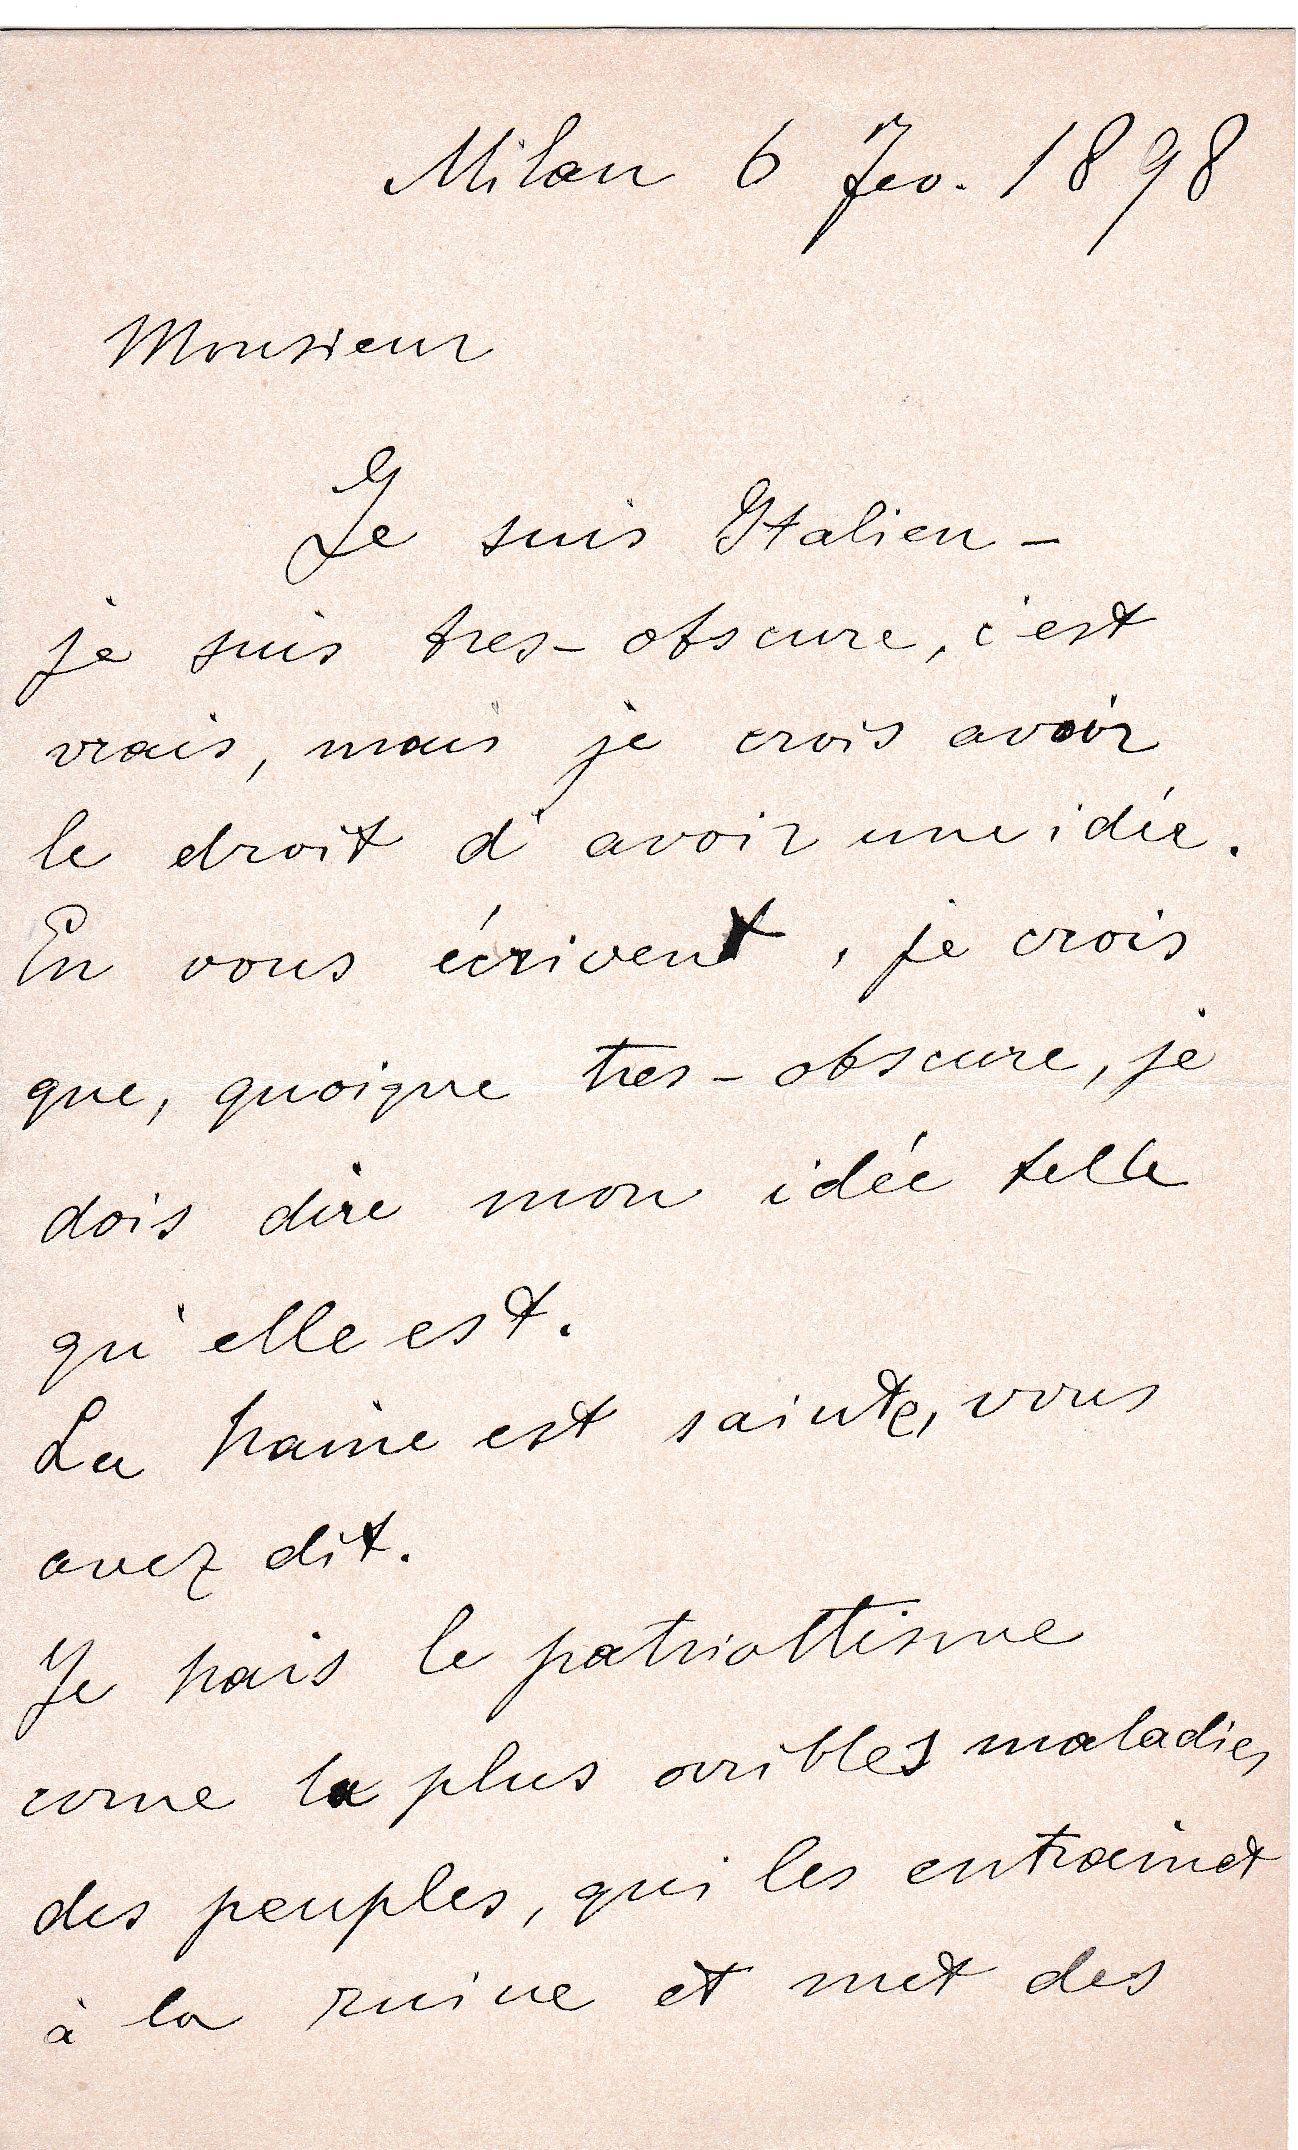 Milan 6 Fev. 1898
Monsieur
Je suis Italien -
je suis tres-obscure, c'est
vrais, mais je crois avoir
le droit d'avoir une idée.
En vous écrivent, je crois
que, quoique tres-obscure, je
dois dire mon idée telle
qu'elle est.
La haine est sainte, vous
avez dit.
Je hais le patriottisme
come la plus orribles maladies
des peuples, qui les entrainet
à la ruine et met des